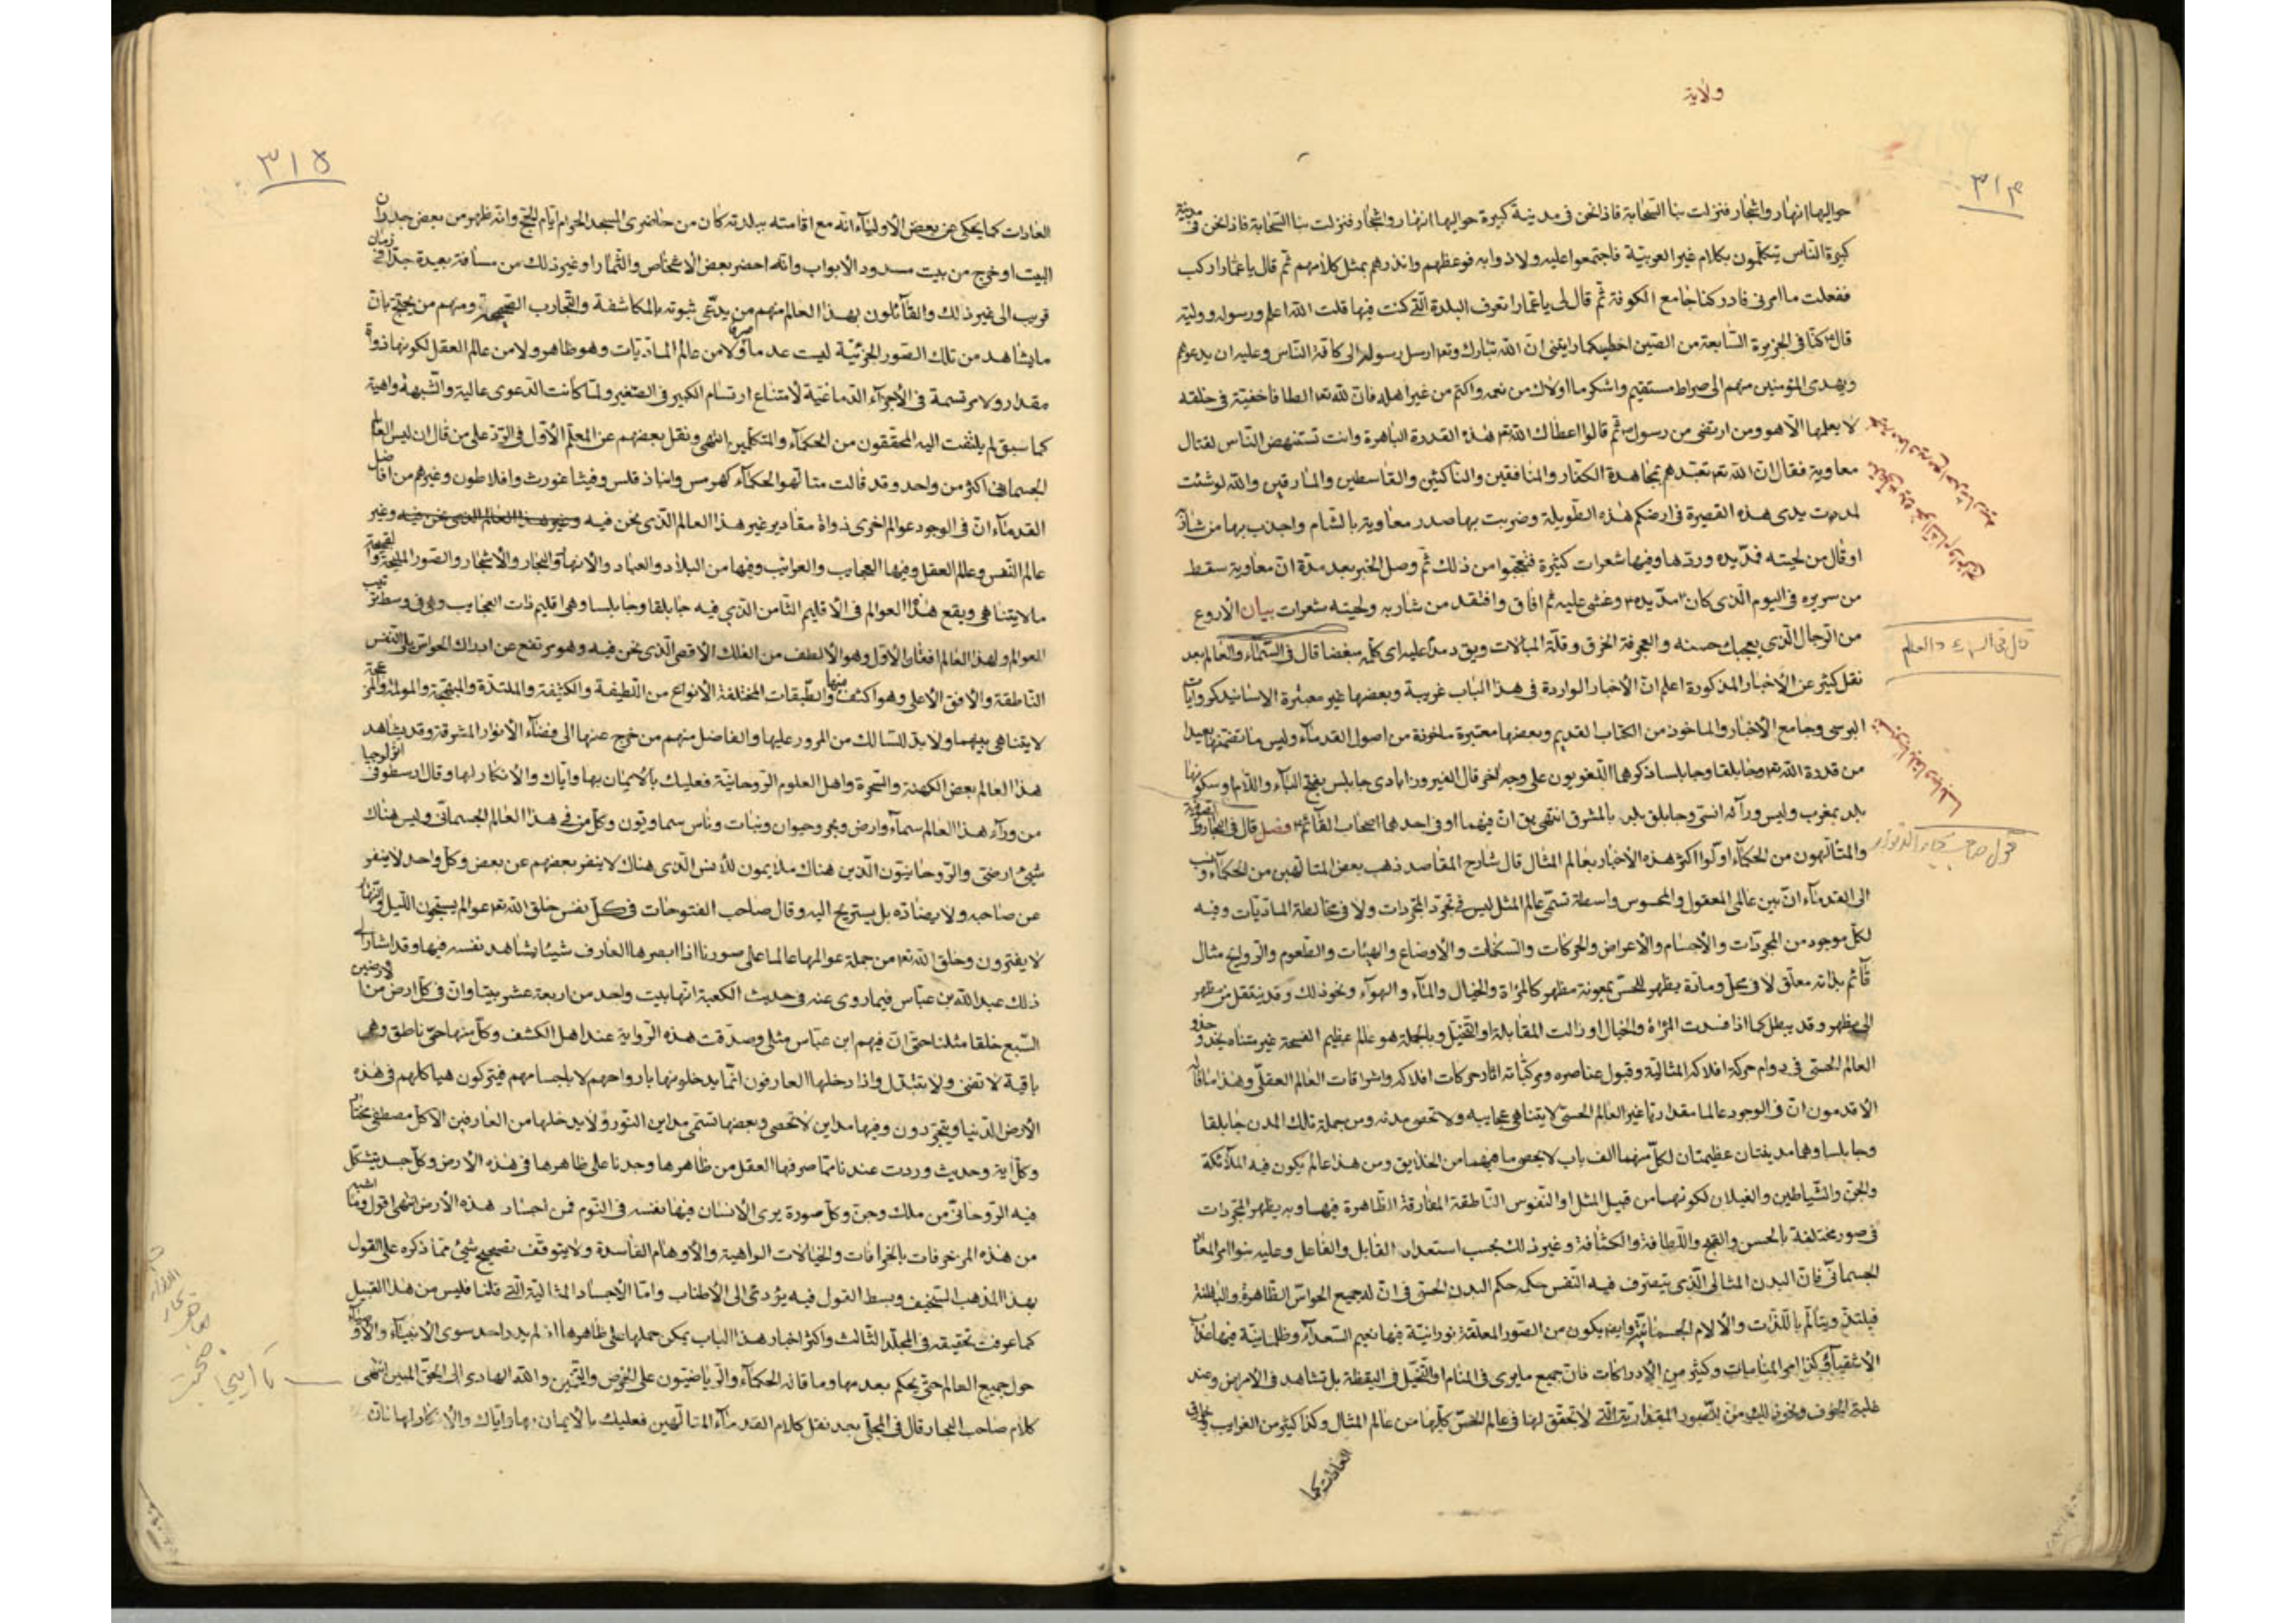 ولاية
٣١٤
حواليها انهار واشجار فنزلت بنا السحابة فاذا نحن فى مدينة كبيرة حواليها انهار واشجار فنزلت بنا السحابة فاذا نحن فى مدينة
كبيرة الناس يتكلمون بكلام غير العربية فاجتمعوا عليه ولاذوا به فوعظهم وانذرهم بمثل كلامهم ثم قال يا عمار اركب
ففعلت ما امرنى فادركنا جامع الكوفة ثم قال لى يا عمار تعرف البلدة التى كنت فيها قلت الله اعلم ورسوله ووليه
قال كنا فى الجزيرة السابعة من الصين اخطب كما رايتنى ان الله تبارك وتع ارسل رسوله الى كافة الناس وعليه ان يدعوهم
ويهدى المؤمنين منهم الى صراط مستقيم واشكر ما اولاك من نعمه واكتم من غير اهله فان لله تع الطافا خفية فى خلقه
لا يعلمها الا هو ومن ارتضى من رسول ثم قالوا اعطاك الله تع هذه القدرة الباهرة وانت تستنهض الناس لقتال
معاوية فقال ان الله تع تعبدهم بمجاهدة الكفار والمنافقين والناكثين والقاسطين والمارقين والله لو شئت
لمددت يدى هذه القصيرة فى ارضكم هذه الطويلة وضربت بها صدر معاوية بالشام واجذب بها من شاربه
او قال من لحيته فمد يده وردها وفيها شعرات كثيرة فتعجبوا من ذلك ثم وصل الخبر بعد مدة ان معاوية سقط
من سريره فى اليوم الذى كان مد يده وغشى عليه ثم افاق وافتقد من شاربه ولحيته شعرات بيان الاروع
من الرجال الذى يعجبك حسنه والعجرفة الخرق وقلة المبالات ويق دمدم عليه اى كلمه مغضبا قال فى السماء والعالم بعد
نقل كثير عن الاخبار المذكورة اعلم ان الاخبار الواردة فى هذا الباب غريبة وبعضها غير معتبرة الاسانيد كروايات
البرسى وجامع الاخبار والماخوذ من الكتاب القديم وبعضها معتبرة ماخوذة من اصول القدماء وليس ما تتضمنها بعيدا
من قدرة الله تع وجابلقا وجابلسا ذكرهما اللغويون على وجه اخر قال الفيروزابادى جابلس بفتح الباء واللام او سكونها
بلد بمغرب وليس ورآئه انسى وجابلق بلد بالمشرق انتهى يق ان فيهما او فى احدهما اصحاب القائم وفصل قال فى البحار والصوفية
والمتألهون من الحكماء اولوا اكثر هذه الاخبار بعالم المثال قال شارح المقاصد ذهب بعض المتالهين من الحكماء ونسب
الى القدماء ان بين عالمى المعقول والمحسوس واسطة تسمى عالم المثل ليس فى تجرد المجردات ولا فى مخالطة الماديات وفيه
لكل موجود من المجردات والاجسام والاعراض والحركات والسكنات والاوضاع والهيئات والطعوم والروايح مثال
قائم بذاته معلق لا فى محل ومادة يظهر للحس بمعونة مظهر كالمرآة والخيال والماء والهواء ونحو ذلك وقد ينتقل من مظهر
الى مظهر وقد يبطل كما اذا فسدت المرآة والخيال او زالت المقابلة او التخيل وبالجملة هو عالم عظيم الفسحة غير متناه يحذو حذو
العالم الحسى فى دوام حركة افلاكه المثالية وقبول عناصره ومركباته اثار حركات افلاكه واشراقات العالم العقلى وهذا ما قاله
الاقدمون ان فى الوجود عالما مقداريا غير العالم الحسى لا يتناهى عجايبه ولا تحصى مدنه ومن جملة تلك المدن جابلقا
وجابلسا وهما مدينتان عظيمتان لكل منهما الف باب لا يحصى ما فيهما من الخلايق ومن هذا عالم يكون فيه الملائكة
والجن والشياطين والغيلان لكونها من قبيل المثل او النفوس الناطقة المفارقة الظاهرة فيها وبه يظهر المجردات
فى صور مختلفة بالحسن والقبح واللطافة والكثافة وغير ذلك بحسب استعداد القابل والفاعل وعليه بنوا امر المعاد
الجسمانى فان البدن المثالى الذى يتصرف فيه النفس حكمه حكم البدن الحسى فى ان له جميع الحواس الظاهرة والباطنة
فيلتذ ويتألم باللذات والالام الجسمانية وايض يكون من الصور المعلقة نورانية فيها نعيم السعداء وظلمانية فيها عذاب
الاشقياء وكذا امر المنامات وكثير من الادراكات فان جميع ما يرى فى المنام او التخيل فى اليقظة بل تشاهد فى الامراض وعند
غلبة الخوف ونحو ذلك من الصور المقدارية التى لا تحقق لها فى عالم الحس كلها من عالم المثال وكذا كثير من الغرايب وخوارق
العادات كما
قال فى السماء والعالم
٣١٥
العادات كما يحكى عن بعض الاولياء انه مع اقامته ببلدته كان من حاضرى المسجد الحرام ايام الحج وانه ظهر من بعض جدران
البيت او خرج من بيت مسدود الابواب وانه احضر بعض الاشخاص والثمار او غير ذلك من مسافة بعيدة جدا فى زمان
قريب الى غير ذلك والقائلون بهذا العالم منهم من يدعى ثبوته بالمكاشفة والتجارب الصحيحة ومنهم من يحتج بان
ما يشاهد من تلك الصور الجزئية ليست عدما صرفا ولا من عالم الماديات وهو ظاهر ولا من عالم العقل لكونها ذوات
مقدار ولا مرتسمة فى الاجزاء الدماغية لامتناع ارتسام الكبير فى الصغير ولما كانت الدعوى عالية والشبهة واهية
كما سبق لم يلتفت اليه المحققون من الحكماء والمتكلمين انتهى ونقل بعضهم عن المعلم الاول فى الرد على من قال ان ليس العالم
الجسمانى اكثر من واحد وقد قالت متالهوا الحكماء كهرمس وانباذقلس وفيثاغورث وافلاطون وغيرهم من افاضل
القدماء ان فى الوجود عوالم اخرى ذوات مقادير غير هذا العالم الذى نحن فيه وغير هذا العالم الذى نحن فيه وغير
عالم النفس وعالم العقل وفيها العجايب والغرايب وفيها من البلاد والعباد والانهار والبحار والاشجار والصور المليحة والقبيحة
ما لا يتناهى ويقع هذا العوالم فى الاقليم الثامن الذى فيه جابلقا وجابلسا وهو اقليم ذات العجايب وهى فى وسط ترتيب
العوالم ولهذا العالم افقان الاول وهو الالطف من الفلك الاقصى الذى نحن فيه وهو يرتفع عن ادراك الحواس يلى النفس
الناطقة والافق الاعلى وهو اكثف منها والطبقات المختلفة الانواع من اللطيفة والكثيفة والملتذة والمبتهجة والمولمة والمزعجة
لا يتناهى بينهما ولا بد للسالك من المرور عليها والفاضل منهم من خرج عنها الى فضاء الانوار المشرقة وقد يشاهد
هذا العالم بعض الكهنة والسحرة واهل العلوم الروحانية فعليك بالايمان بها واياك والانكار لها وقال ارسطو فى اثولوجيا
من وراء هذا العالم سماء وارض وبحر وحيوان ونبات وناس سماويون وكل من فى هذا العالم الجسمانى وليس هناك
شيئ ارضى والروحانيون الذين هناك ملايمون للانس الذى هناك لا ينفر بعضهم عن بعض وكل واحد لا ينفر
عن صاحبه ولا يضاده بل يستريح اليه وقال صاحب الفتوحات فى كل نفس خلق الله تع عوالم يسبحون الليل والنهار
لا يفترون وخلق الله تع من جملة عوالمها عالما على صورنا اذا ابصرها العارف شيئا يشاهد نفسه فيها وقد اشار الى
ذلك عبد الله بن عباس فيما روى عنه فى حديث الكعبة انها بيت واحد من اربعة عشر بيتا وان فى كل ارض من الارضين
السبع خلقا مثلنا حتى ان فيهم ابن عباس مثلى وصدقت هذه الرواية عند اهل الكشف وكل منها حى ناطق وهى
باقية لا تفنى ولا تتبدل واذا دخلها العارفون انما يدخلونها بارواحهم لا باجسامهم فيتركون هياكلهم فى هذه
الارض الدنيا ويتجردون وفيها مداين لا تحصى وبعضها تسمى مداين النور ولا يدخلها من العارفين الا كل مصطفى مختار
وكل اية وحديث وردت عندنا مما صرفها العقل من ظاهرها وجدنا على ظاهرها فى هذه الارض وكل جسد يتشكل
فيه الروحانى من ملك وجن وكل صورة يرى الانسان فيها نفسه فى النوم فمن اجساد هذه الارض انتهى اقول وما اشبه
من هذه المزخرفات بالخرافات والخيالات الواهية والاوهام الفاسدة ولا يتوقف تصحيح شيئ مما ذكره على القول
بهذا المذهب السخيف وبسط القول فيه يؤدى الى الاطناب واما الاجساد المثالية التى قلنا فليس من هذا القبيل
كما عرفت تحقيقه فى المجلد الثالث واكثر اخبار هذا الباب يمكن حملها على ظاهرها اذ لم يدر احد سوى الانبياء والاوصياء
حول جميع العالم حتى يحكم بعدمها وما قاله الحكماء والرياضيون على الخرص والتخمين والله الهادى الى الحق المبين انتهى
كلام صاحب البحار قال فى المجلى بعد نقل كلام القدماء المتالهين فعليك بالايمان بها واياك والانكار لها فان